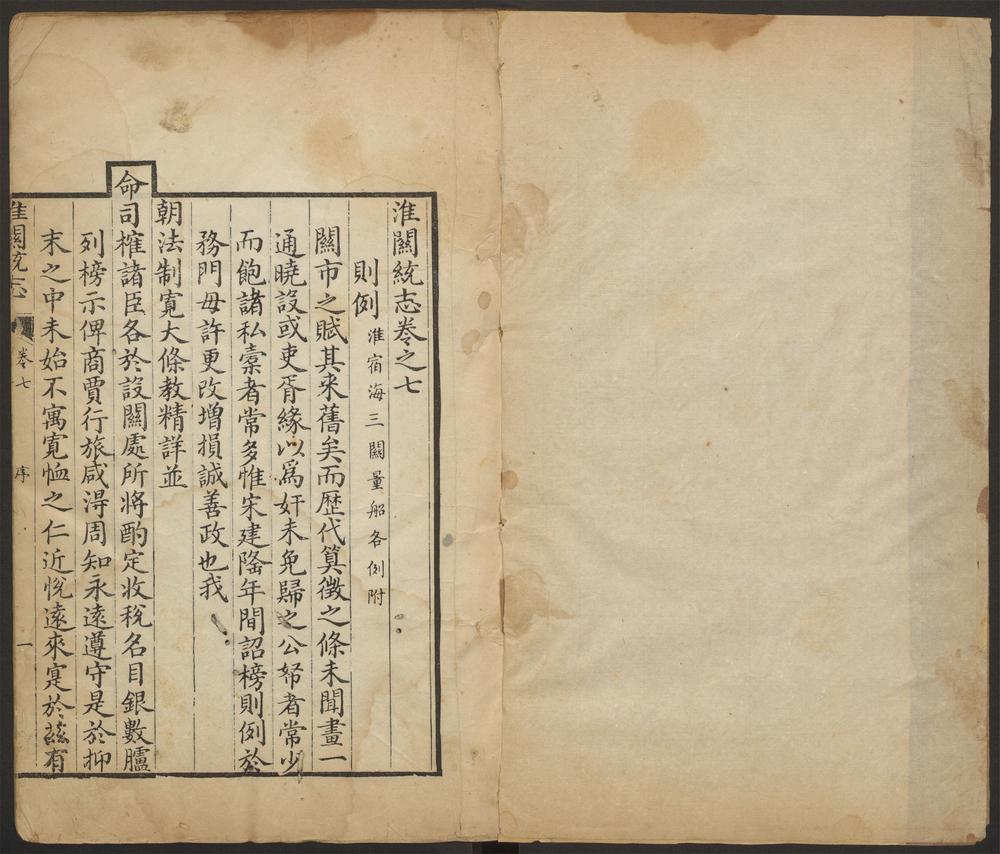 淮關統志卷之七
則例 淮宿海三關量船各例附
關市之賦其来舊矣而歷代算徵之條未聞畫一
通曉設或吏胥緣以爲奸未免歸之公帑者常少
而飽諸私橐者常多惟宋建隆年間詔榜則例於
務門毋許更改增損誠善政也我
朝法制寛大條教精詳並
命司榷諸臣各於設關處所將酌定收稅名目銀數臚
列榜示俾商賈行旅咸得周知永遠遵守是於抑
末之中未始不寓寛恤之仁近悅遠來寔於茲有
淮關統志 卷七 序 一